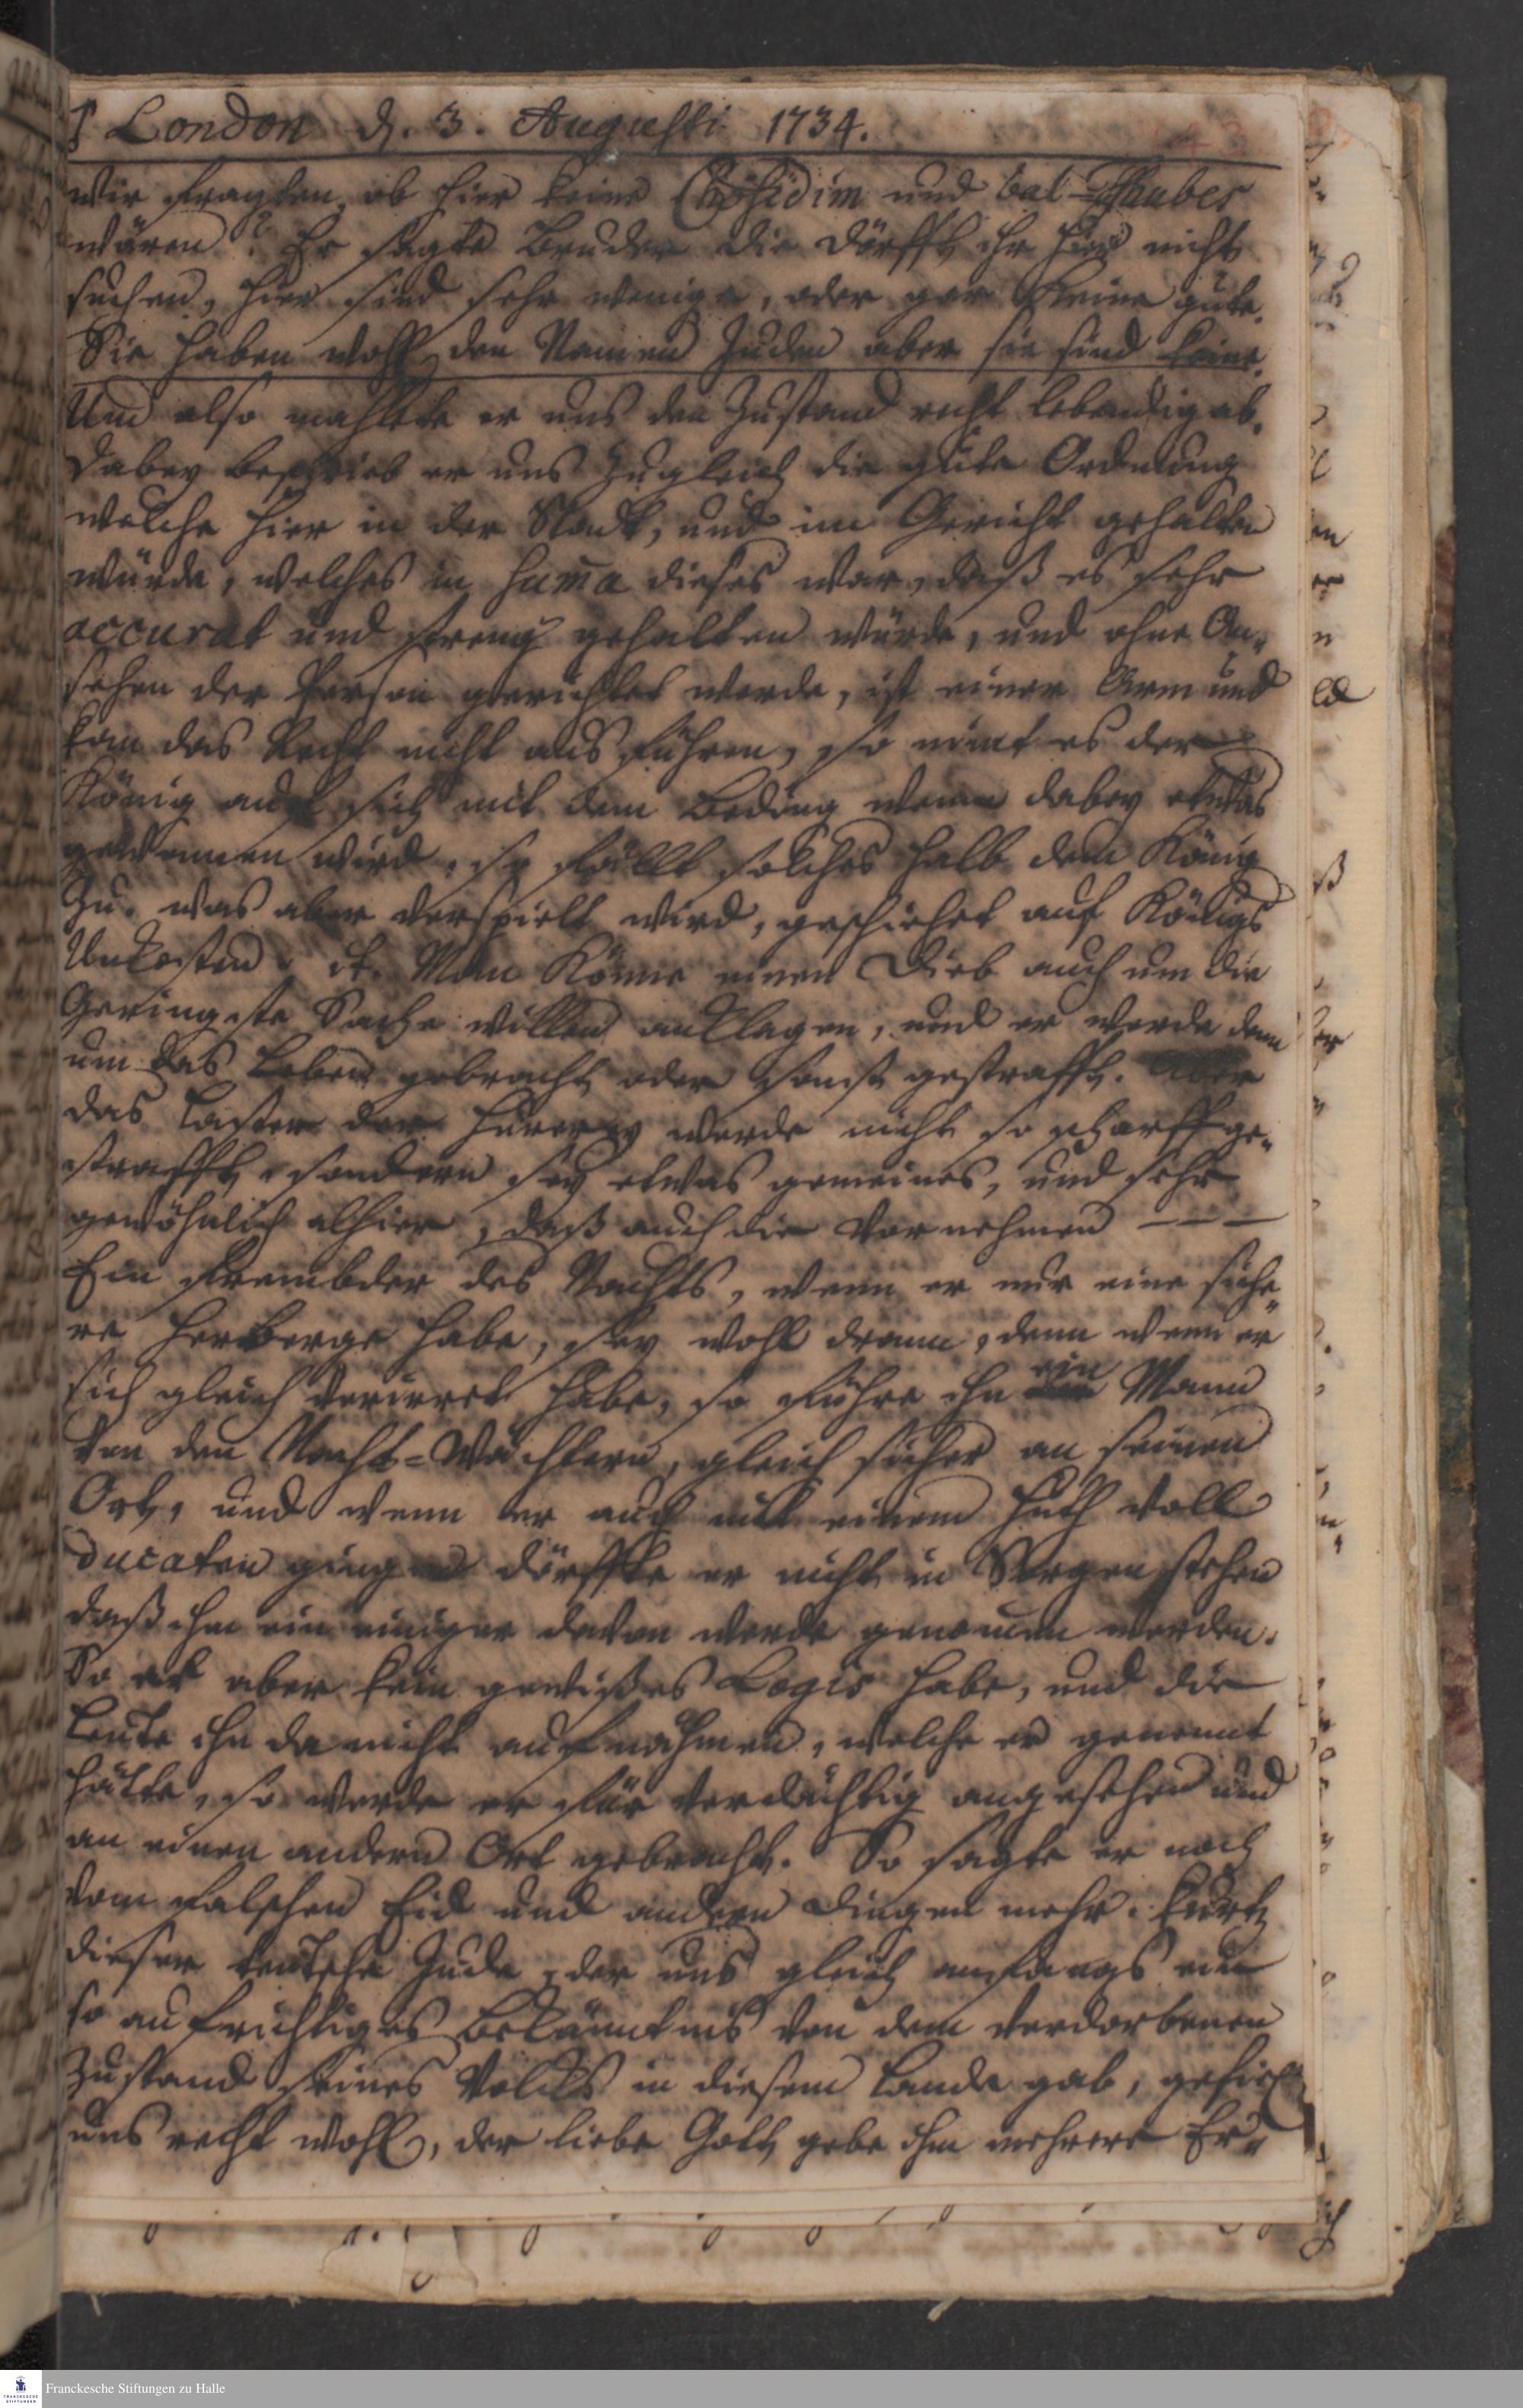 London d. 3. Augusti 1734.
wir fragten, ob hier keine Chosidim und bal-Tschubes
wären? Er sagte Bruder die dörfft ihr hier nicht
suchen, hier sind sehr wenige, oder gar keine gute.
Sie haben wohl den Namen Juden aber sie sind keine.
Und also mahlete er uns den Zustand recht lebendig ab.
Dabey beschrieb er uns zugleich die gute Ordnung
welche hier in der Stadt, und im Gericht gehalten
würde, welches in suma dieses war, daß es sehr
accurat und streng gehalten würde, und ohne An-
sehen der Person gerichtet werde, ist einer Arm und
kan das Recht nicht aus führen, so nimt es der
König auf sich mit dem Beding wenn dabey etwas
gewonnen wird, so fällt solches halb dem König
zu. was aber verspielt wird, geschiehet auf Königs
Unkosten. it. Man könne einen Dieb auch um die
Geringste Sache willen anklagen, und er werde denn
um das Leben gebracht oder sonst gestrafft. Aber
das Laster der Hurerey werde nicht so scharff ge-
strafft, sondern sey etwas gemeines, und sehr
gewöhnlich alhier, daß auch die Vornehmen - - -
Ein Frembder des Nachts, wenn er nur eine siche-
re Herberge habe, sey wohl drann, denn wenn er
sich gleich verirret habe, so führe ihn ein Mann
von den Nacht-Wächtern, gleich sicher an seinen
Ort, und wenn er auch mit einem Huth voll
Ducaten gienge dörffte er nicht in Sorgen stehen
daß ihm ein einiger davon werde genommen werden.
So er aber kein gewißes Logis habe, und die
Leute ihn da nicht aufnähmen, welche er genennt
hätte, so werde er für verdächtig angesehen und
an einen andern Ort gebracht. So sagte er noch
vom falschen Eid und andern Dingen mehr. Kurtz
dieser teutsche Jude, der uns gleich anfangs ein
so aufrichtiges Bekänntnis von dem verdorbenen
Zustand seines Volcks in diesem Lande gab, gefiel
uns recht wohl, der liebe Gott gebe ihm mehrere Er-
Franckesche Stiftungen zu Halle